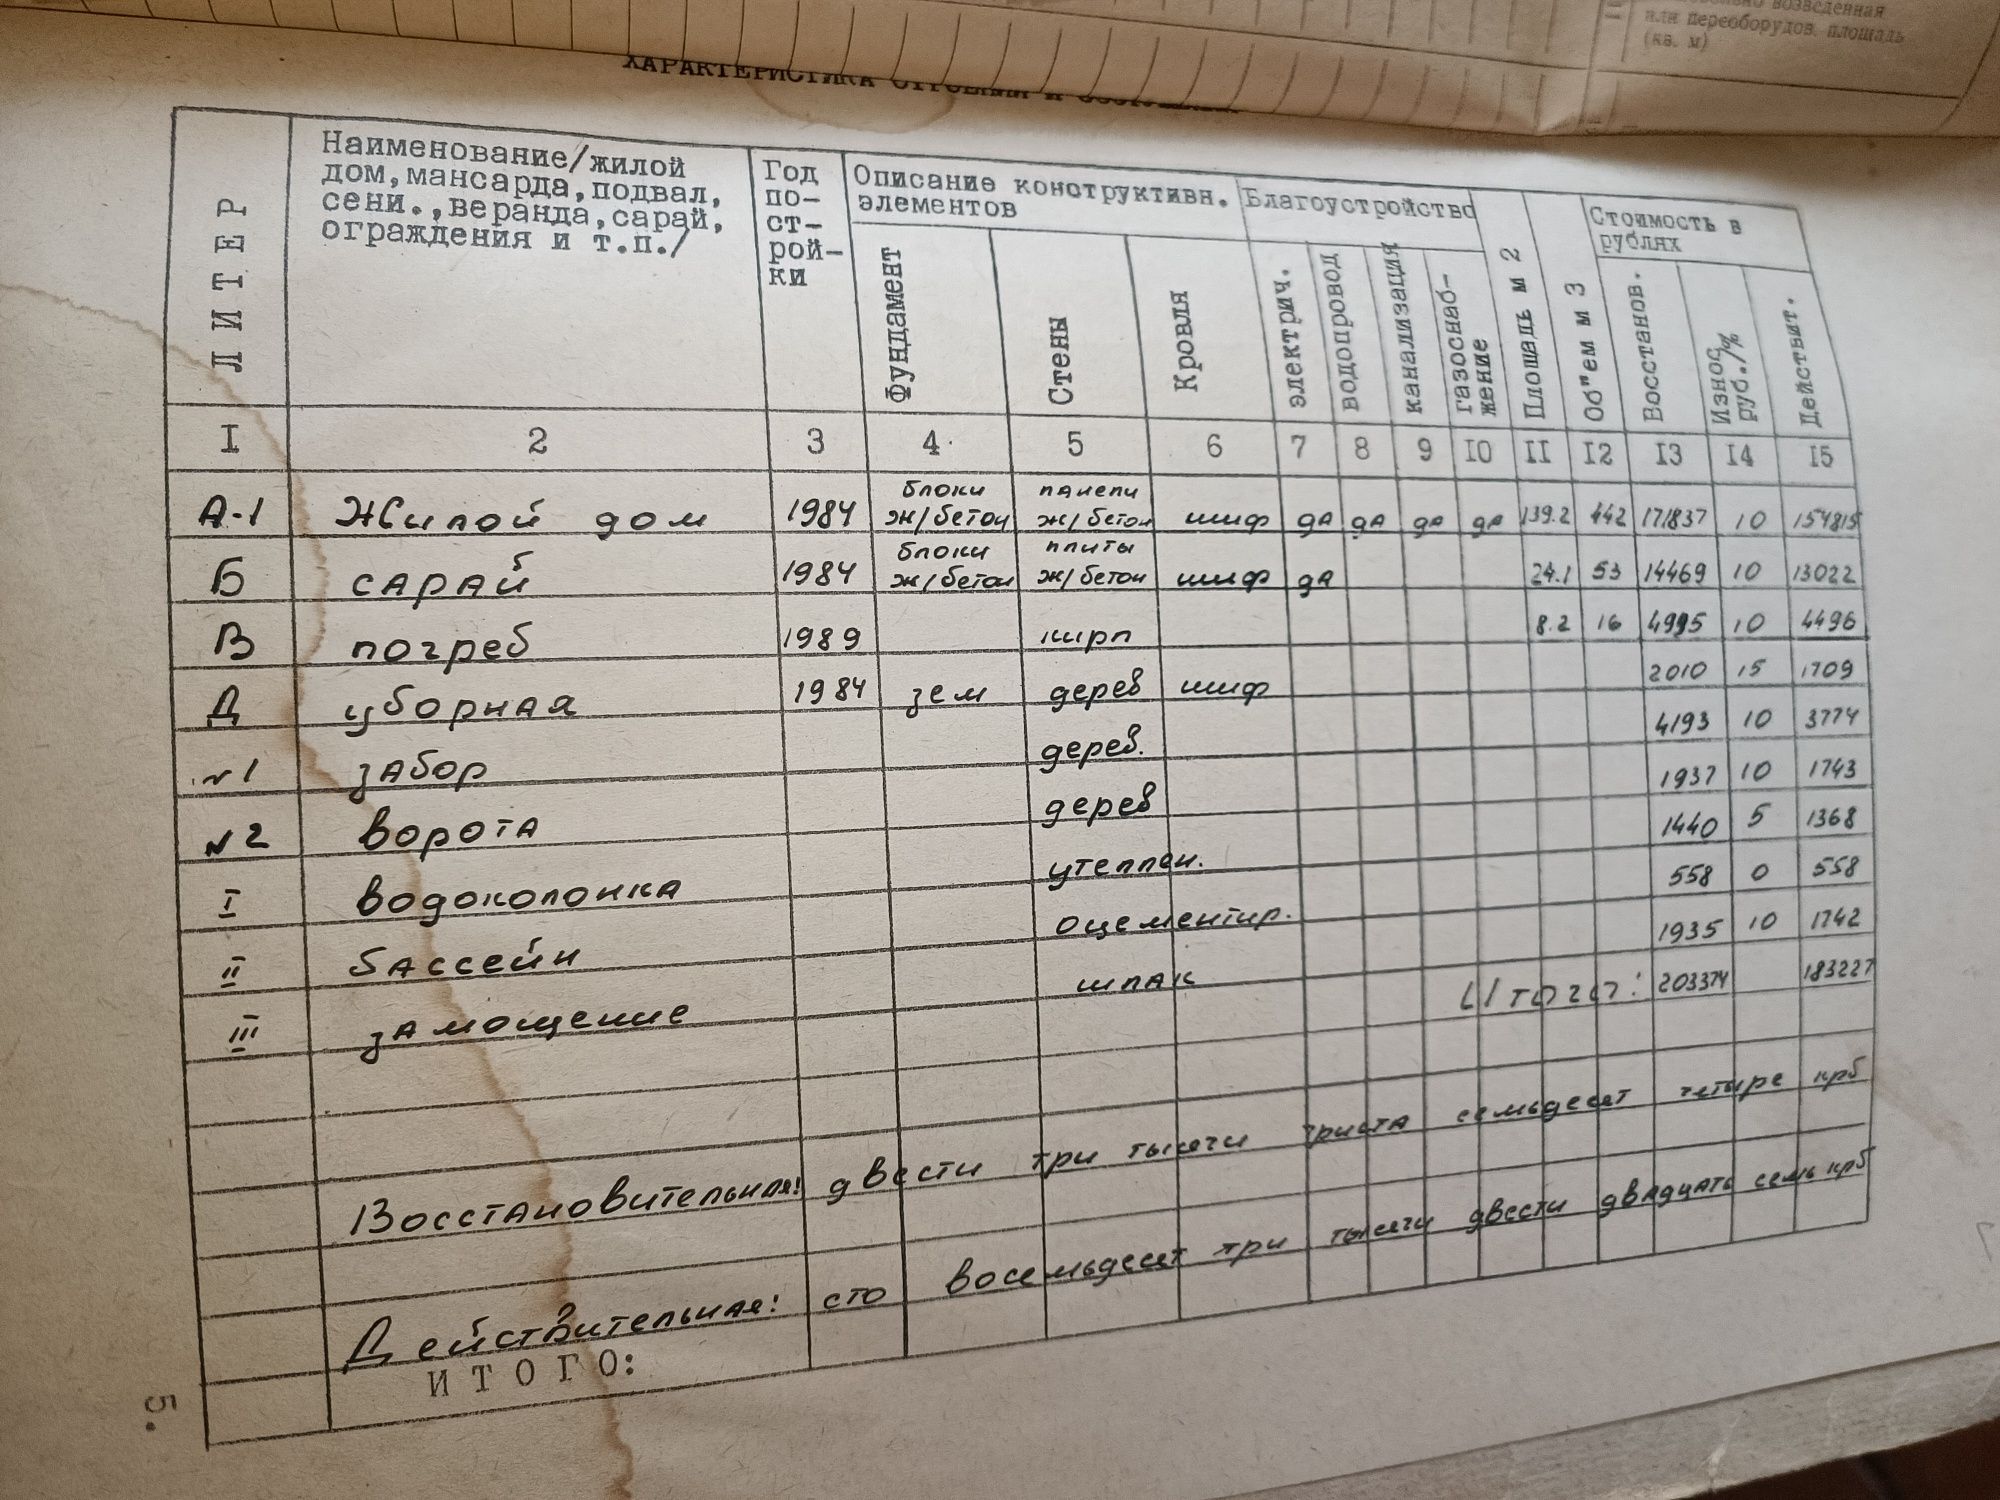 возведенная
или переоборудов. площадь
(кв. м)
ХАРАКТЕРИСТИКА
ЛИТЕР
Наименование/жилой
дом,мансарда,подвал,
сени.,веранда,сарай,
ограждения и т.п./
Год
по-
ст-
рой-
ки
Описание конструктивн.
элементов
Фундамент
Стены
Кровля
Благоустройство
электрич.
водопровод
канализация
газоснаб-
жение
Площадь м 2
Об"ем м 3
Стоимость в
рублях
Восстанов.
Износ
руб./%
Действит.
I 2 3 4 5 6 7 8 9 IO II I2 I3 I4 I5
А-1 Жилой дом 1984 блоки ж/бетон панели ж/бетон шиф да да да да 139.2 442 171837 10 154815
Б сарай 1984 блоки ж/бетон плиты ж/бетон шиф да 24.1 53 14469 10 13022
В погреб 1989 кирп 8.2 16 4995 10 4496
Д уборная 1984 зем дерев шиф 2010 15 1709
№1 забор дерев. 4193 10 3774
№2 ворота дерев 1937 10 1743
I водоколонка утеплен. 1440 5 1368
II бассейн оцементир. 558 0 558
III замощение шлак 1935 10 1742
Итого: 203374 183227
Восстановительная: двести три тысячи триста семьдесят четыре крб
Действительная: сто восемьдесят три тысячи двести двадцать семь крб
ИТОГО:
5.